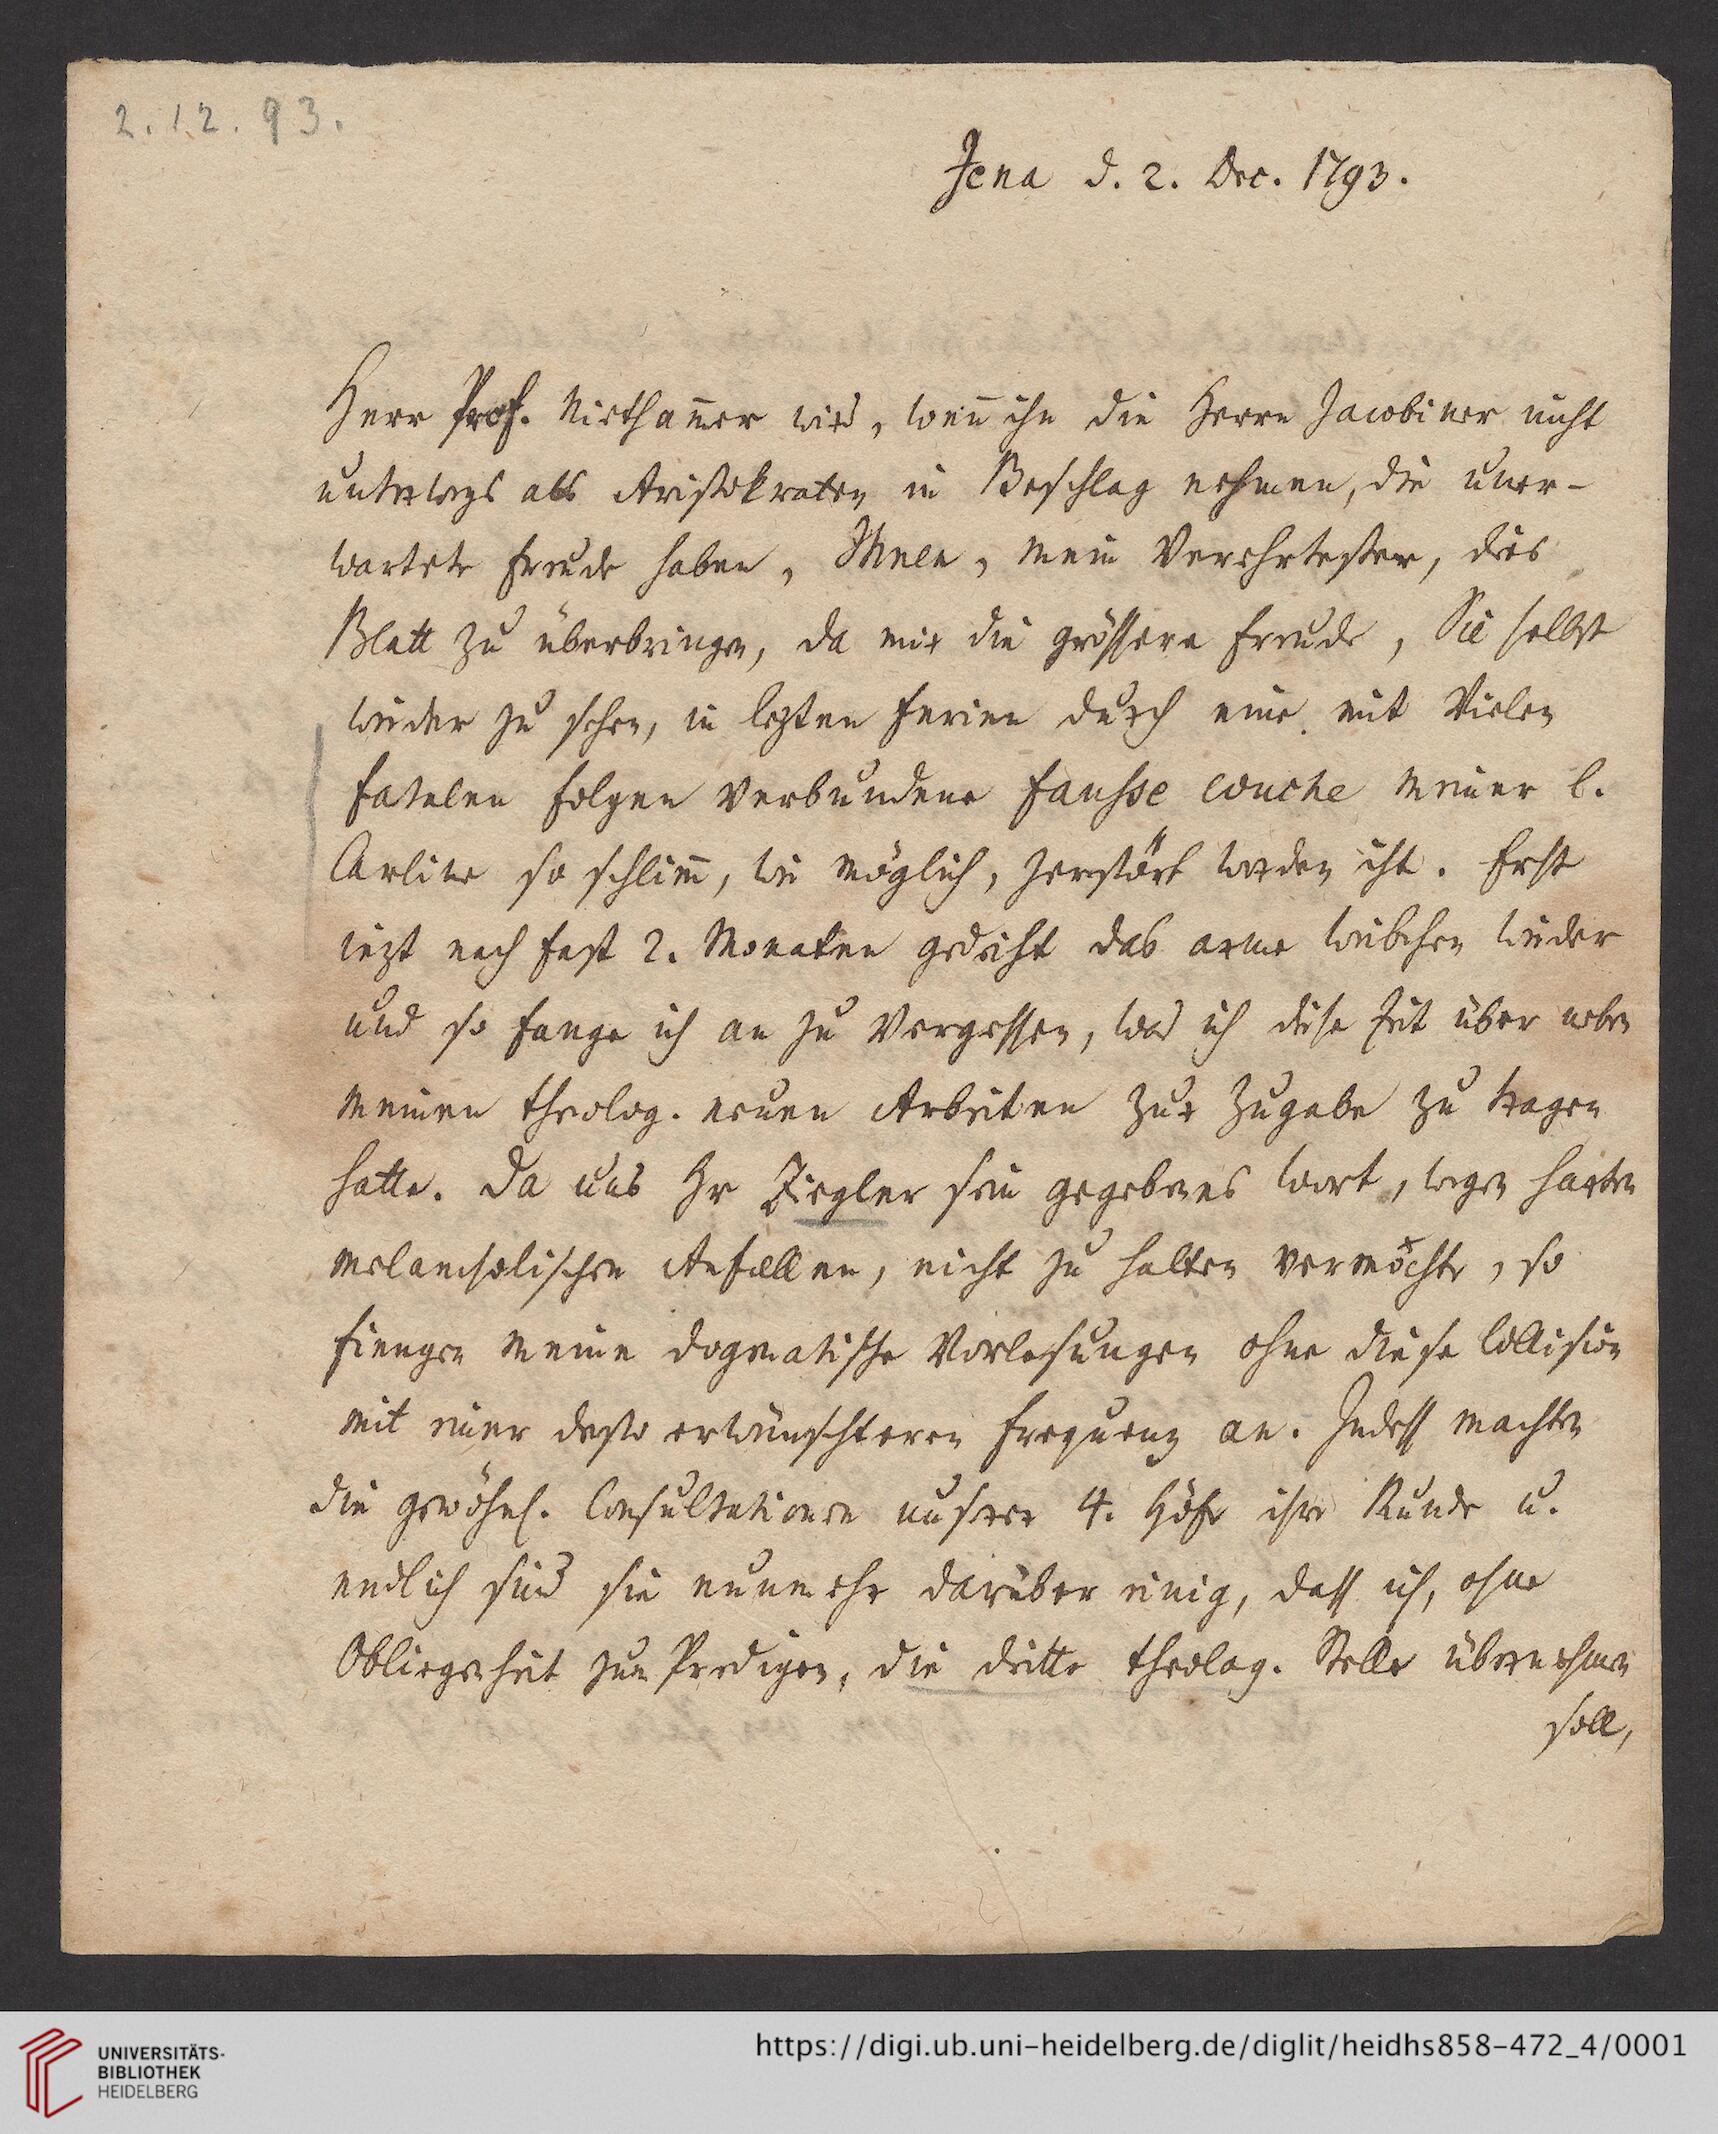 2.12.93.
Jena d. 2. Dec. 1793.
Herr Prof. Nietham̅er wird, wen̅ ihn die Herrn Jacobiner nicht
unterwegs als Aristokraten in Beschlag nehmen, die uner-
wartete Freude haben, Ihnen, mein Verehrtester, dies
Blatt zu überbringen, da mir die grössere Freude, Sie selbst
wieder zu sehen, in lezten Ferien durch eine mit vielen
fatalen Folgen verbundene fausse couche meiner l.
Carline so schlim̅, wie möglich, zerstört worden ist. Erst
iezt nach fast 2. Monaten gedeiht das arme Weibchen wieder
und so fange ich an zu vergessen, was ich diese Zeit über neben
meinen theolog. neuen Arbeiten zur Zugabe zu tragen
hatte. Da uns Hr Ziegler sein gegebenes Wort, wegen harten
melancholischen Anfällen, nicht zu halten vermochte, so
fiengen meine dogmatische Vorlesungen ohne diese Collision
mit einer desto erwünschteren Frequenz an. Indess machten
die gewöhnl. Consultationen unserer 4. Höfe ihre Runde u.
endlich sind sie nunmehr darüber einig, dass ich, ohne
Obliegenheit zum Predigen, die dritte theolog. Stelle übernehmen
soll,
UNIVERSITÄTS-
BIBLIOTHEK
HEIDELBERG
https://digi.ub.uni-heidelberg.de/diglit/heidhs858-472_4/0001